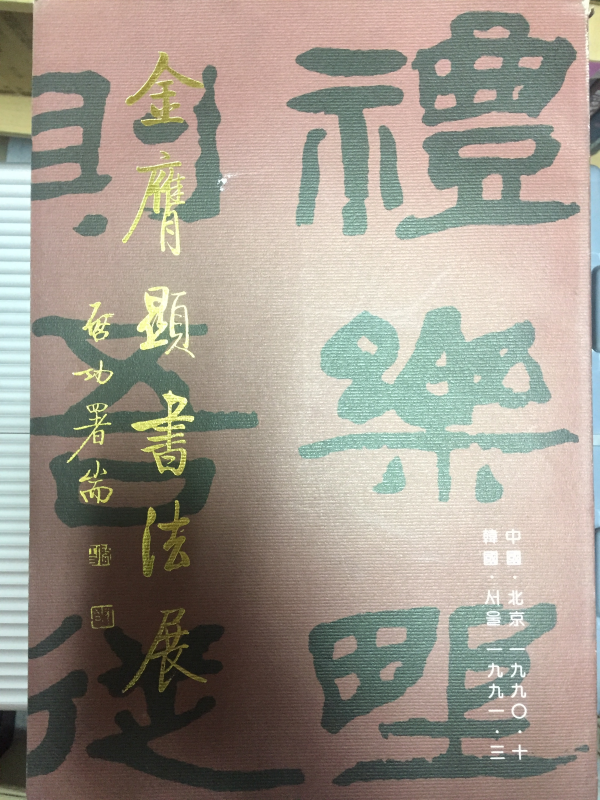 禮樂野
則吾從
金膺顯書法展
启功署耑
中國·北京 一九九〇·十
韓國·서울 一九九一·三